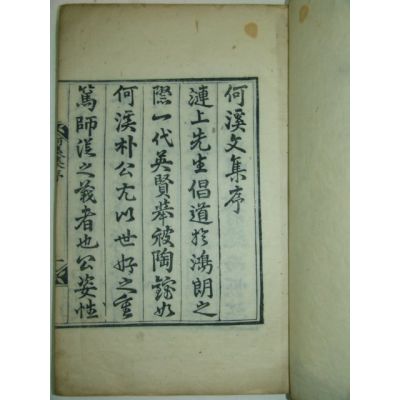 何溪文集序
漣上先生倡道於鴻朗之
際一代英賢輩被陶鎔如
何溪朴公尤以世好之重
篤師從之義者也公姿性